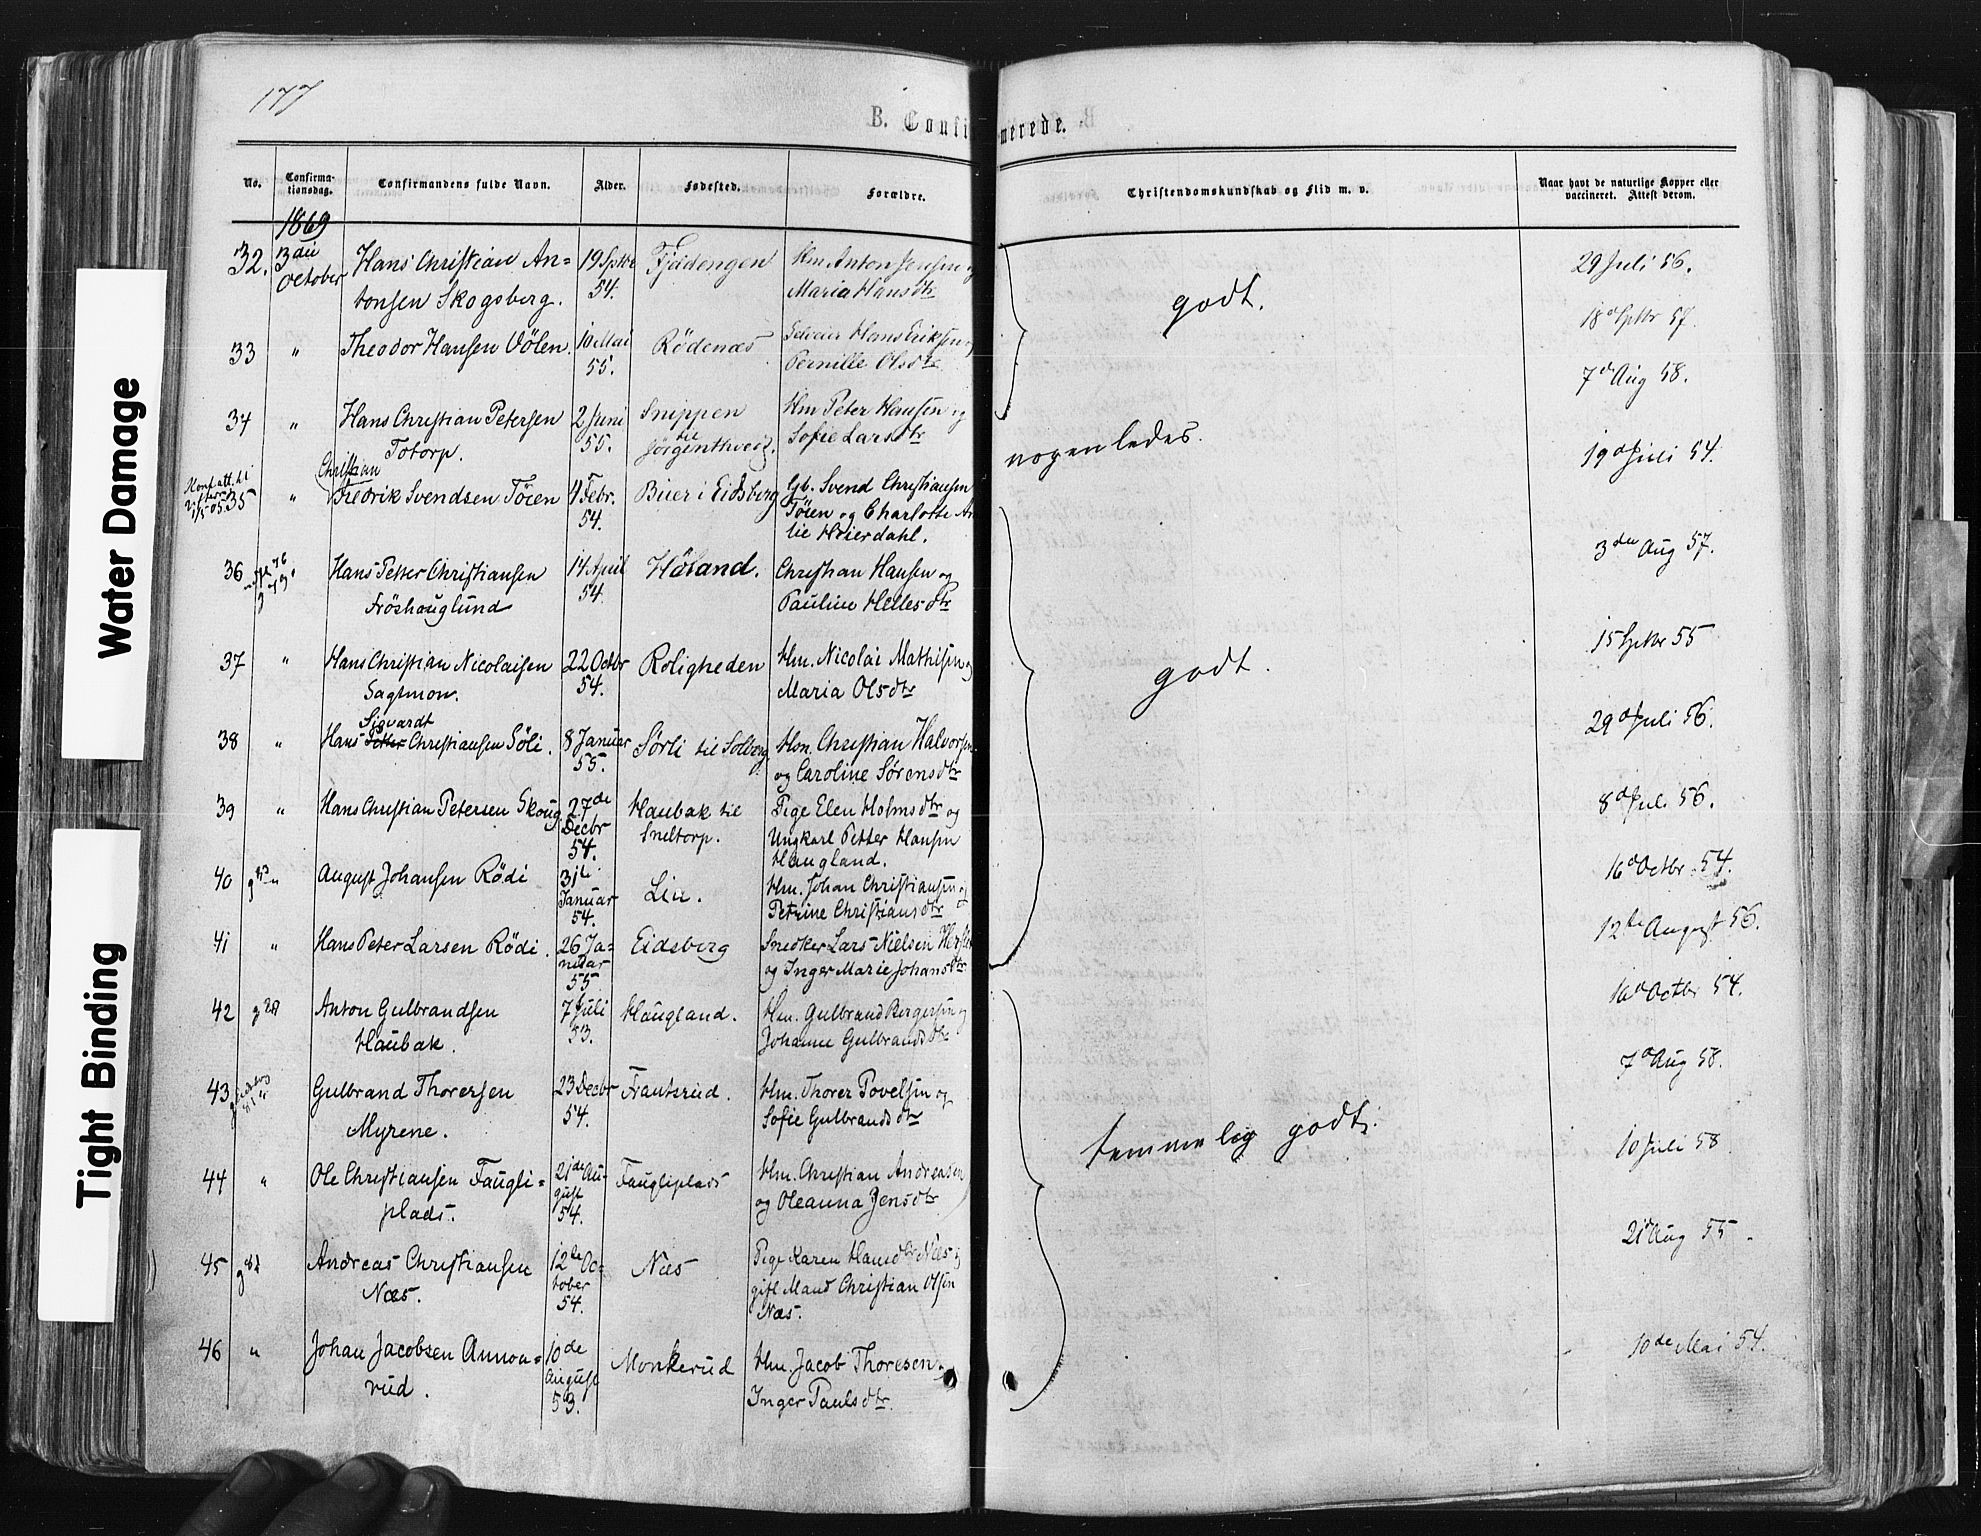 177
B. Confirmerede.
No. Confirmationsdag. Confirmandens fulde Navn. Alder. Fødested. Forældre. Christendomskundskab og Flid m. v. Naar havt de naturlige Kopper eller vaccineret. Attest derom.
1869
32. 3die October Hans Christian Antonsen Skogsberg. 19 Septbr 54. Fjødengen Hm Anton Jensen og Maria Hansdtr godt. 29 Juli 56.
33 " Theodor Hansen Völen. 10 Mai 55. Rödenæs Hans Eriksen og Pernille Olsdtr 18d Septbr 57.
7de Aug 58.
34 " Hans Christian Petersen Totorp. 2 Juni 55. Snippen til Jörgenthveid. Hm Peter Hansen og Sofie Larsdtr nogenledes. 19d Juli 54.
Konf.att. til
2/5 05. 35 " Christian Fredrik Svendsen Töien 4 Febr. 54. Buer i Eidsberg Gb. Svend Christiansen Töien og Charlotte Høierdahl.
3die Aug 57.
36 Hans Petter Christiansen Fröshauglund 14 April 54. Høland. Christian Hansen og Pauline Hellesdtr
37 " Hans Christian Nicolaisen Sagmon. 22 Octbr 54. Roligheden Hm. Nicolai Mathisen og Maria Olsdtr godt. 15 Septbr 55
29d Juli 56.
38 " Hans Sigvardt Petter Christiansen Söli. 8 Januar 55. Sörli til Solberg Hm. Christian Halvorsen og Caroline Sörensdtr
39 " Hans Christian Petersen Skoug 27de Decbr 54. Haubak til Sneltorp. Pige Elen Holmsdtr og Ungkarl Petter Hansen Haugland. 8d Juli 56.
40 g 83 " August Johansen Rödi 31te Januar 54. Lie. Hm. Johan Christiansen og Petrine Christiansdtr 16d Octbr 54.
41 " Hans Peter Larsen Rödi. 26 Januar 55 Eidsberg Snedker Lars Nielsen og Inger Marie Johansdtr 12te August 56.
42 Anton Gulbrandsen Haubak. 7 Juli 53. Haugland. Hm. Gulbrand Bergersen og Johanne Gulbrandsdtr 16d Octbr 54.
7d Aug 58.
43 Gulbrand Thoresen Myrene. 23 Decbr 54. Frantsrud. Hm. Thorer Povelsen og Sofie Gulbrandsdtr temmelig godt.
44 " Ole Christiansen Faugliplads. 21de August 54. Faugliplads Hm. Christian Andreasen og Oleanna Jensdtr 10 Juli 58
45 g 82 Andreas Christiansen Næs. 12te October 54. Næs Pige Karen Hansdtr Næs og gift Mand Christian Olsen Næs. 21d Aug 55
46 " Johan Jacobsen Annonrud. 10de August 53. Monkerud Hm. Jacob Thoresen Inger Paulsdtr. 10de Mai 54.
Water Damage
Tight Binding